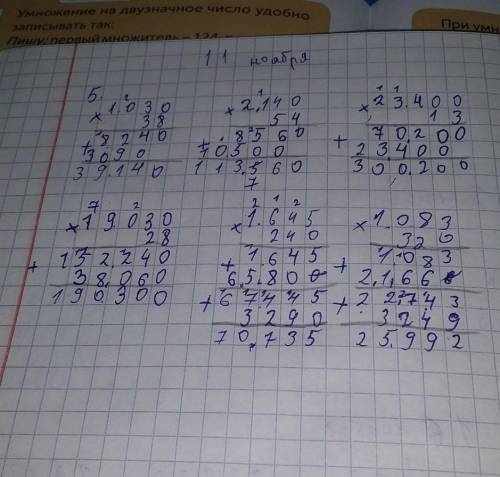 Умножение на двузначное число удобно
записывать так:
Пишу: первый множитель – 124,
При умн
11 ноября
5.
2
1.030
×
38
+8240
3090
39.140
1
2.140
×
54
+8560
10500
113.560
7
1 1
23.400
×
13
+ 70.200
23400
300.200
7 2
19.030
×
28
+ 152.240
38.060
190.300
2 1 2
1.645
×
240
+ 1.645
6.5.80
+ 67.445
3.290
70.735
1.083
×
320
+ 1.083
2.1.66
+ 22.743
3249
25.992